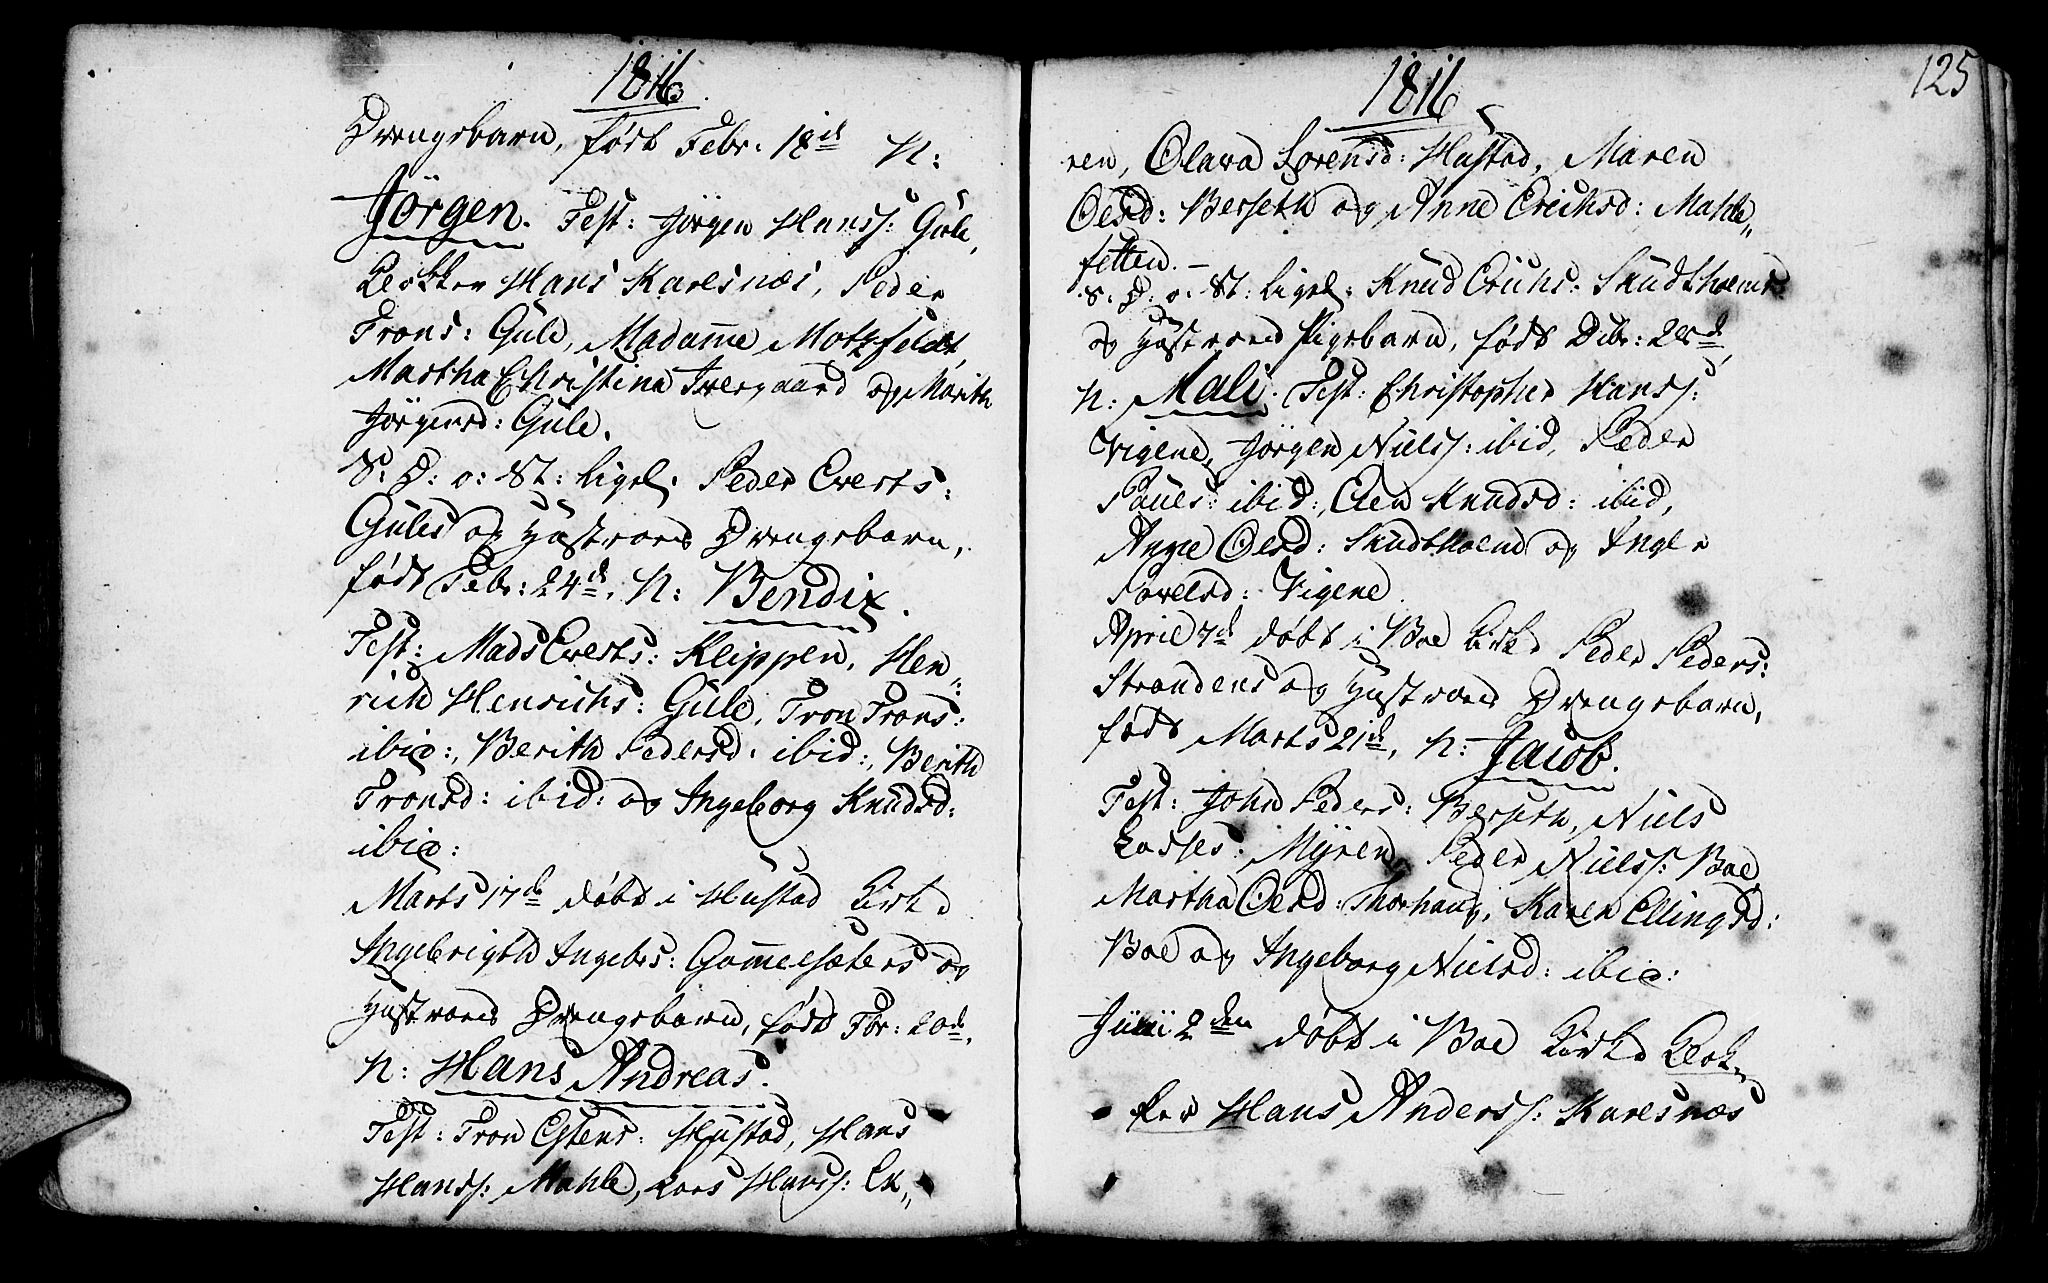 1816
Drengebarn, født Febr. 18de N:
Jörgen. Test: Jörgen Hanss: Gule,
Klokker Hans Karlsnæs, Peder
Trons: Gule, Madame Motzfeldt,
Martha Christina Ivergaard og Marith
Jörgensd: Gule.
S. D: o: St: ligel. Peder Everts:
Gules og Hustroes Drengebarn,
født Febr: 24de, N: Bendix.
Test: Mads Everts: Klippen, Hen„
rich Henrichs: Gule, Tron Trons:
ibid:, Berith Pedersd: ibid:, Berith
Tronsd: ibid: og Ingeborg Knudsd:
ibid:
Marts 17de döbt i Hustad Kirke
Ingebrigth Ingebrs: Gammelsæters og
Hustroes Drengebarn, født Fbr: 20de,
N: Hans Andreas.
Test: Tron Estens: Hustad, Hans
Hanss: Mahle, Lars Hanss: Ek„
125
1816
ren, Olava Sorensd: Hustad, Maren
Olsd: Berseth og Anne Erichsd: Mahle„
fetten. –
S. D: o: St: ligel: Knud Erichs: Skudtholms
og Hustroes Pigebarn, født Dcbr: 28de,
N: Mali. Test: Christopher Hanss:
Vigene, Jörgen Nielss: ibid, Peder
Poues: ibid:, Elen Knudsd: ibid,
Anne Olsd: Skudtholm og Inger
Povelsd: Vigene.
April 7de döbt i Boe Kirke Peder Peders:
Strandens og Hustroes Drengebarn,
født Marts 21de, N: Jacob.
Test: John Peders: Berseth, Niels
Lasses: Myren, Peder Nielss: Boe,
Martha Olsd: Thorhaug, Karen Ellingsd:
Boe og Ingeborg Nielsd: ibid:
Junii 2den döbt i Boe Kirke Klok„
ker Hans Anderss: Karlsnæs